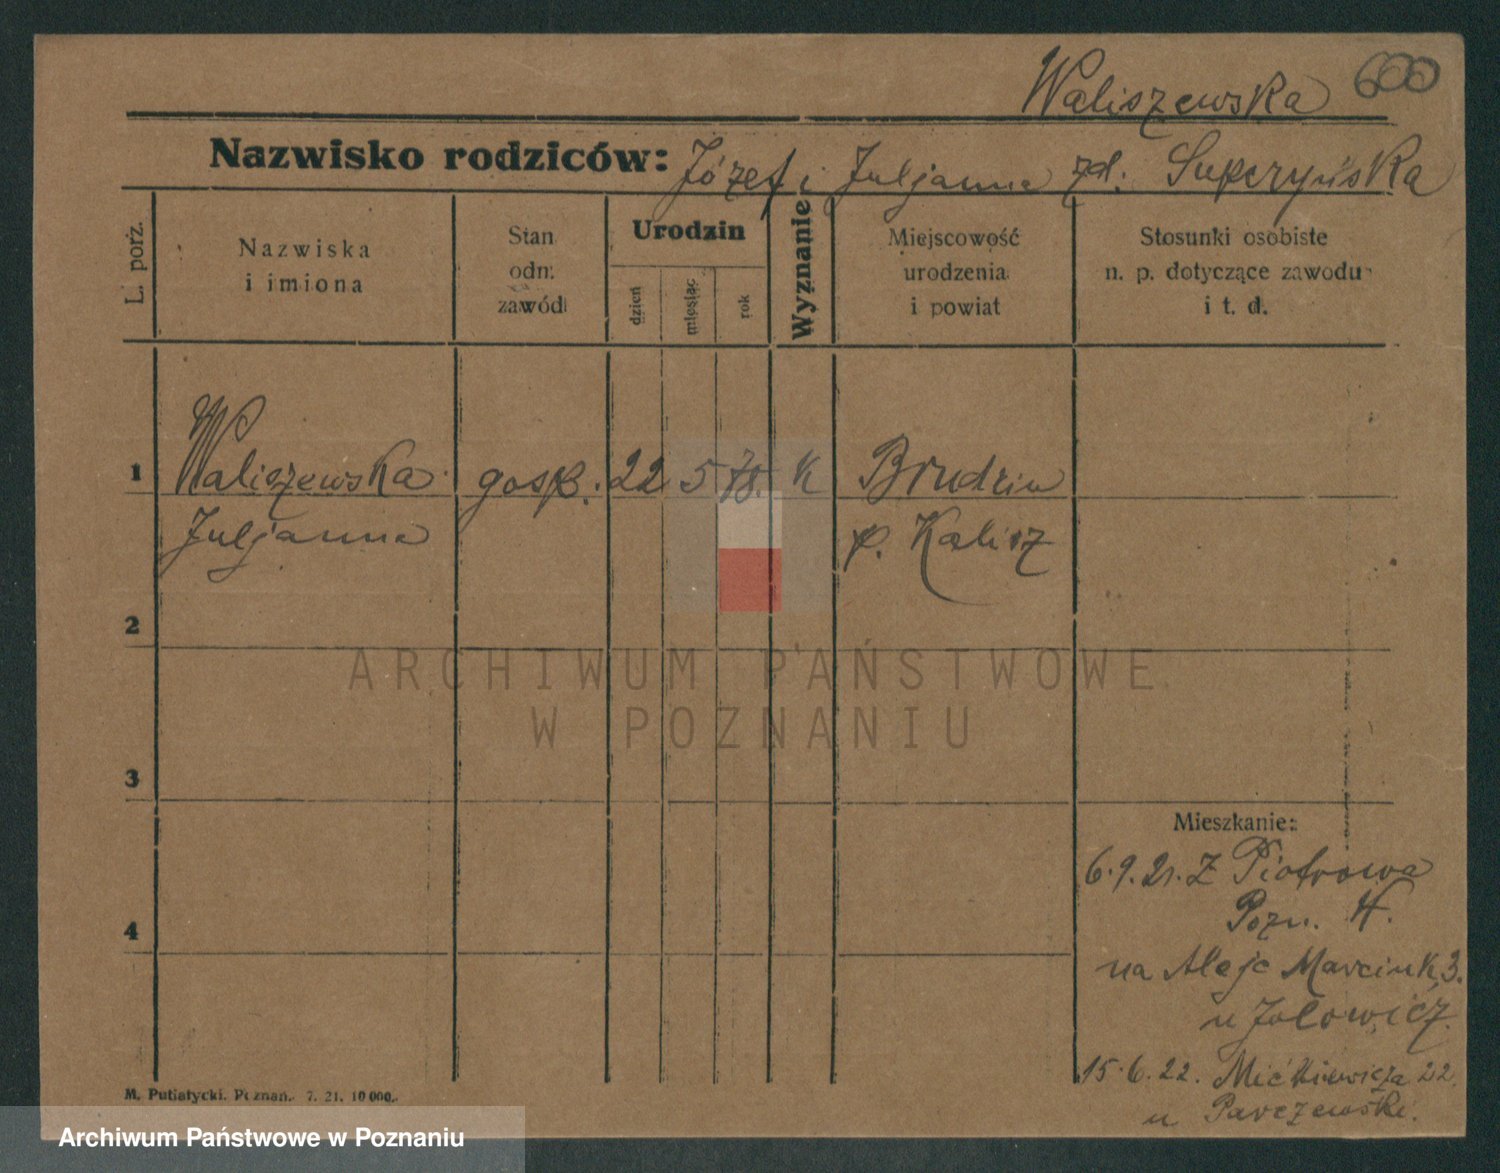 Waliszewska 600
Nazwisko rodziców: Józef i Juljanna zd. Supczyńska
L. porz.
Nazwiska
i imiona
Stan
odn.
zawód
Urodzin
dzień
miesiąc
rok
Wyznanie
Miejscowość
urodzenia
i powiat
Stosunki osobiste
n. p. dotyczące zawodu
i t. d.
1 Waliszewska gosp. 22 5 78. K Brudzin
Juljanna p. Kalisz
2
ARCHIWUM PAŃSTWOWE
W POZNANIU
3
Mieszkanie:
6.9.21. Z Piotrowa
Pozn.
4
na Aleje Marcink. 3.
u Jołowicz.
15.6.22. Mickiewicza 22.
u Parczewski.
M. Putiatycki. Poznań. 7. 21. 10 000.
Archiwum Państwowe w Poznaniu